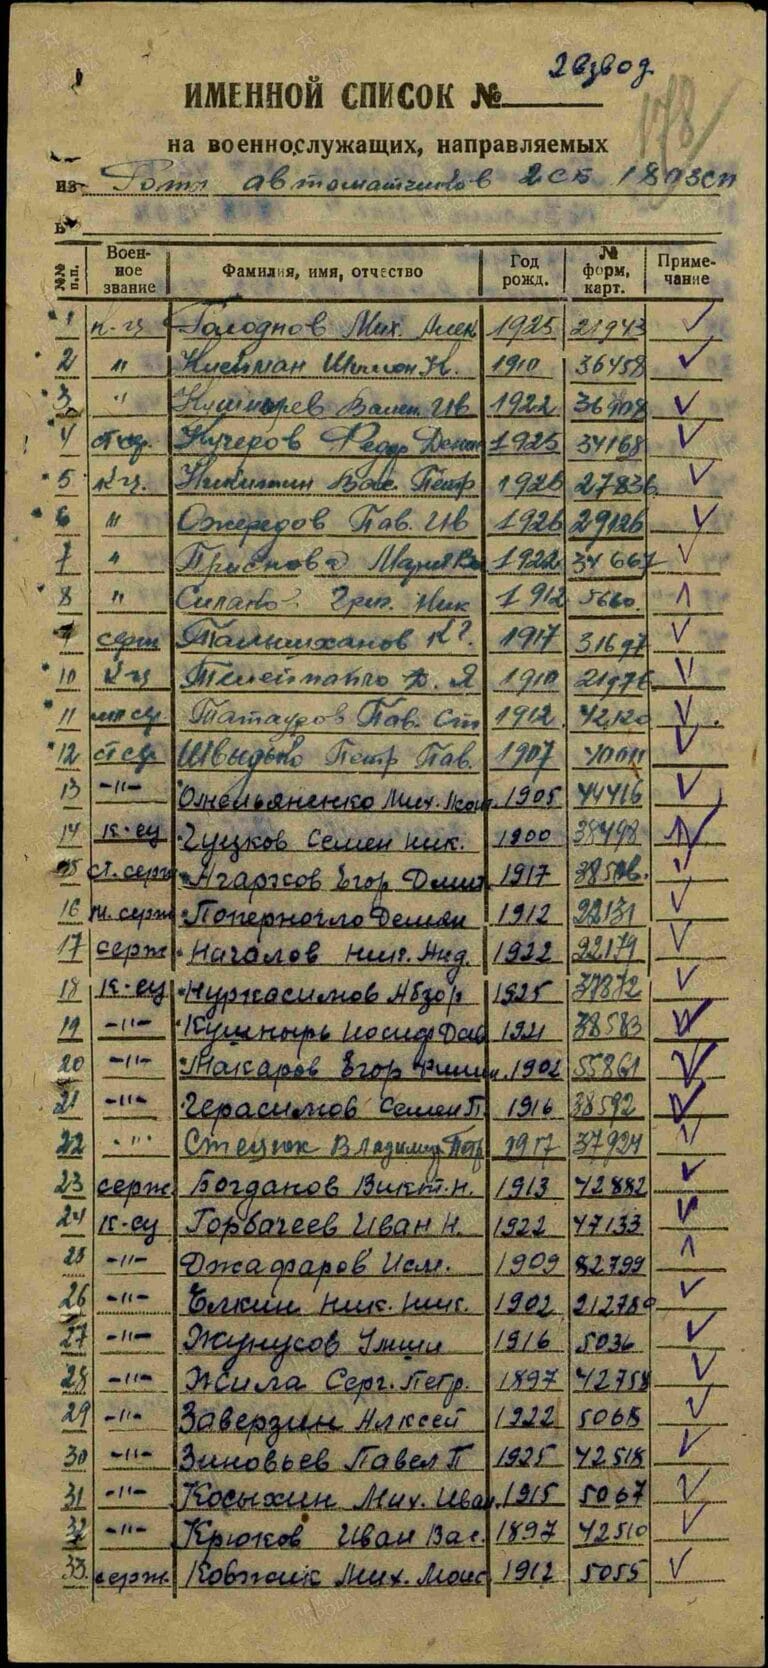 2 взвод
ИМЕННОЙ СПИСОК №
178
на военнослужащих, направляемых
из Роты автоматчиков 2 сб 189 зсп
в
№№ п.п. Воен-ное звание Фамилия, имя, отчество Год рожд. № форм, карт. Приме-чание
1 к-ц Голоднов Мих. Алек 1925 21943 V
2 " 1910 36458 V
3 " Вален. Ив 1922 V
4 ст.ср. Кучеров Федор 1925 34168 V
5 к-ц. Никитин Вас. Петр 1926 27836 V
6 " Ожередов Пав. Ив 1926 29126 V
7 " Приснова Мария 1922 34667 V
8 " Григ. Ник 1912 5660
9 серж 1917 31697 V
10 к-ц 1910 21976 V
11 мл ср. Татауров Пав. Ст 1912 42120 V
12 ст ср Швыдько Петр Пав. 1907 V
13 -"- Омельяненко Мих. 1905 44416 V
14 к-ец Гуцков Семен Ник. 1900 38498 V
15 ст. серж Агарков Егор Дмит 1917 V
16 м. серж Поперногло Демян 1912 22131 V
17 серж Началов Ник. Анд. 1922 22179 V
18 к-ец Нуркасимов Абзор 1925 37872 V
19 -"- Кушнырь Иосиф Дав 1921 38583 V
20 -"- Макаров Егор 1902 55861 V
21 -"- Герасимов Семен П 1916 38592 V
22 -"- Стецюк Владимир Петр 1917 37924 V
23 серж Богданов Викт. Н. 1913 42882 V
24 к-ец Горбачеев Иван Н. 1922 47133 V
25 -"- Джафаров Исм. 1909 82799
26 -"- Елкин Ник. Ник. 1902 212780 V
27 -"- Жунусов Умши 1916 5036 V
28 -"- Жила Серг. Петр. 1897 42758 V
29 -"- Заверзин Алксей 1922 5068 V
30 -"- Зиновьев Павел П 1925 42518 V
31 -"- Косыхин Мих. Иван. 1915 5067 V
32 -"- Крюков Иван Вас. 1897 42510 V
33. серж. Ковжик Мих. Моис 1912 5055 V